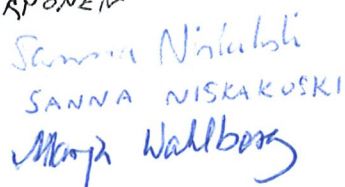 Sanna Niskakoski
SANNA NISKAKOSKI
Wahlberg